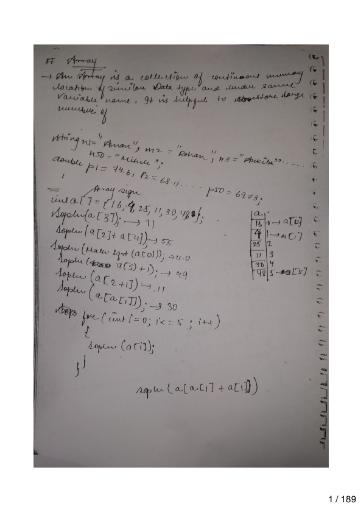 Array
→ An Array is a collection of continuous memory
location of similar data type and under same
variable name. It is helpful to store large
number of
String n1= "Aman"; n2 = "Rohan"; n3 =
double p1 = 74.6, p2 = 68.11 ..... p50 = 69.73;
Array sign
int a[ ] = {16, 4, 25, 11, 30, 48};
Sopln(a[3]); → 11
Sopln(a[2]+a[4]); → 55
Sopln(Math.sqrt(a[0])); → 4.0
Sopln(a[5]+1); → 49
Sopln(a[2+1]) → 11
Sopln(a[a[1]]); → 30
for (int i=0; i<=5; i++)
{
sopln(a[i]);
}
}
sopln(a[a[1]+a[1]])
a
16 0 → a[0]
4 1 → a[1]
25 2
11 3
30 4
48 5 → a[5]
1 / 189